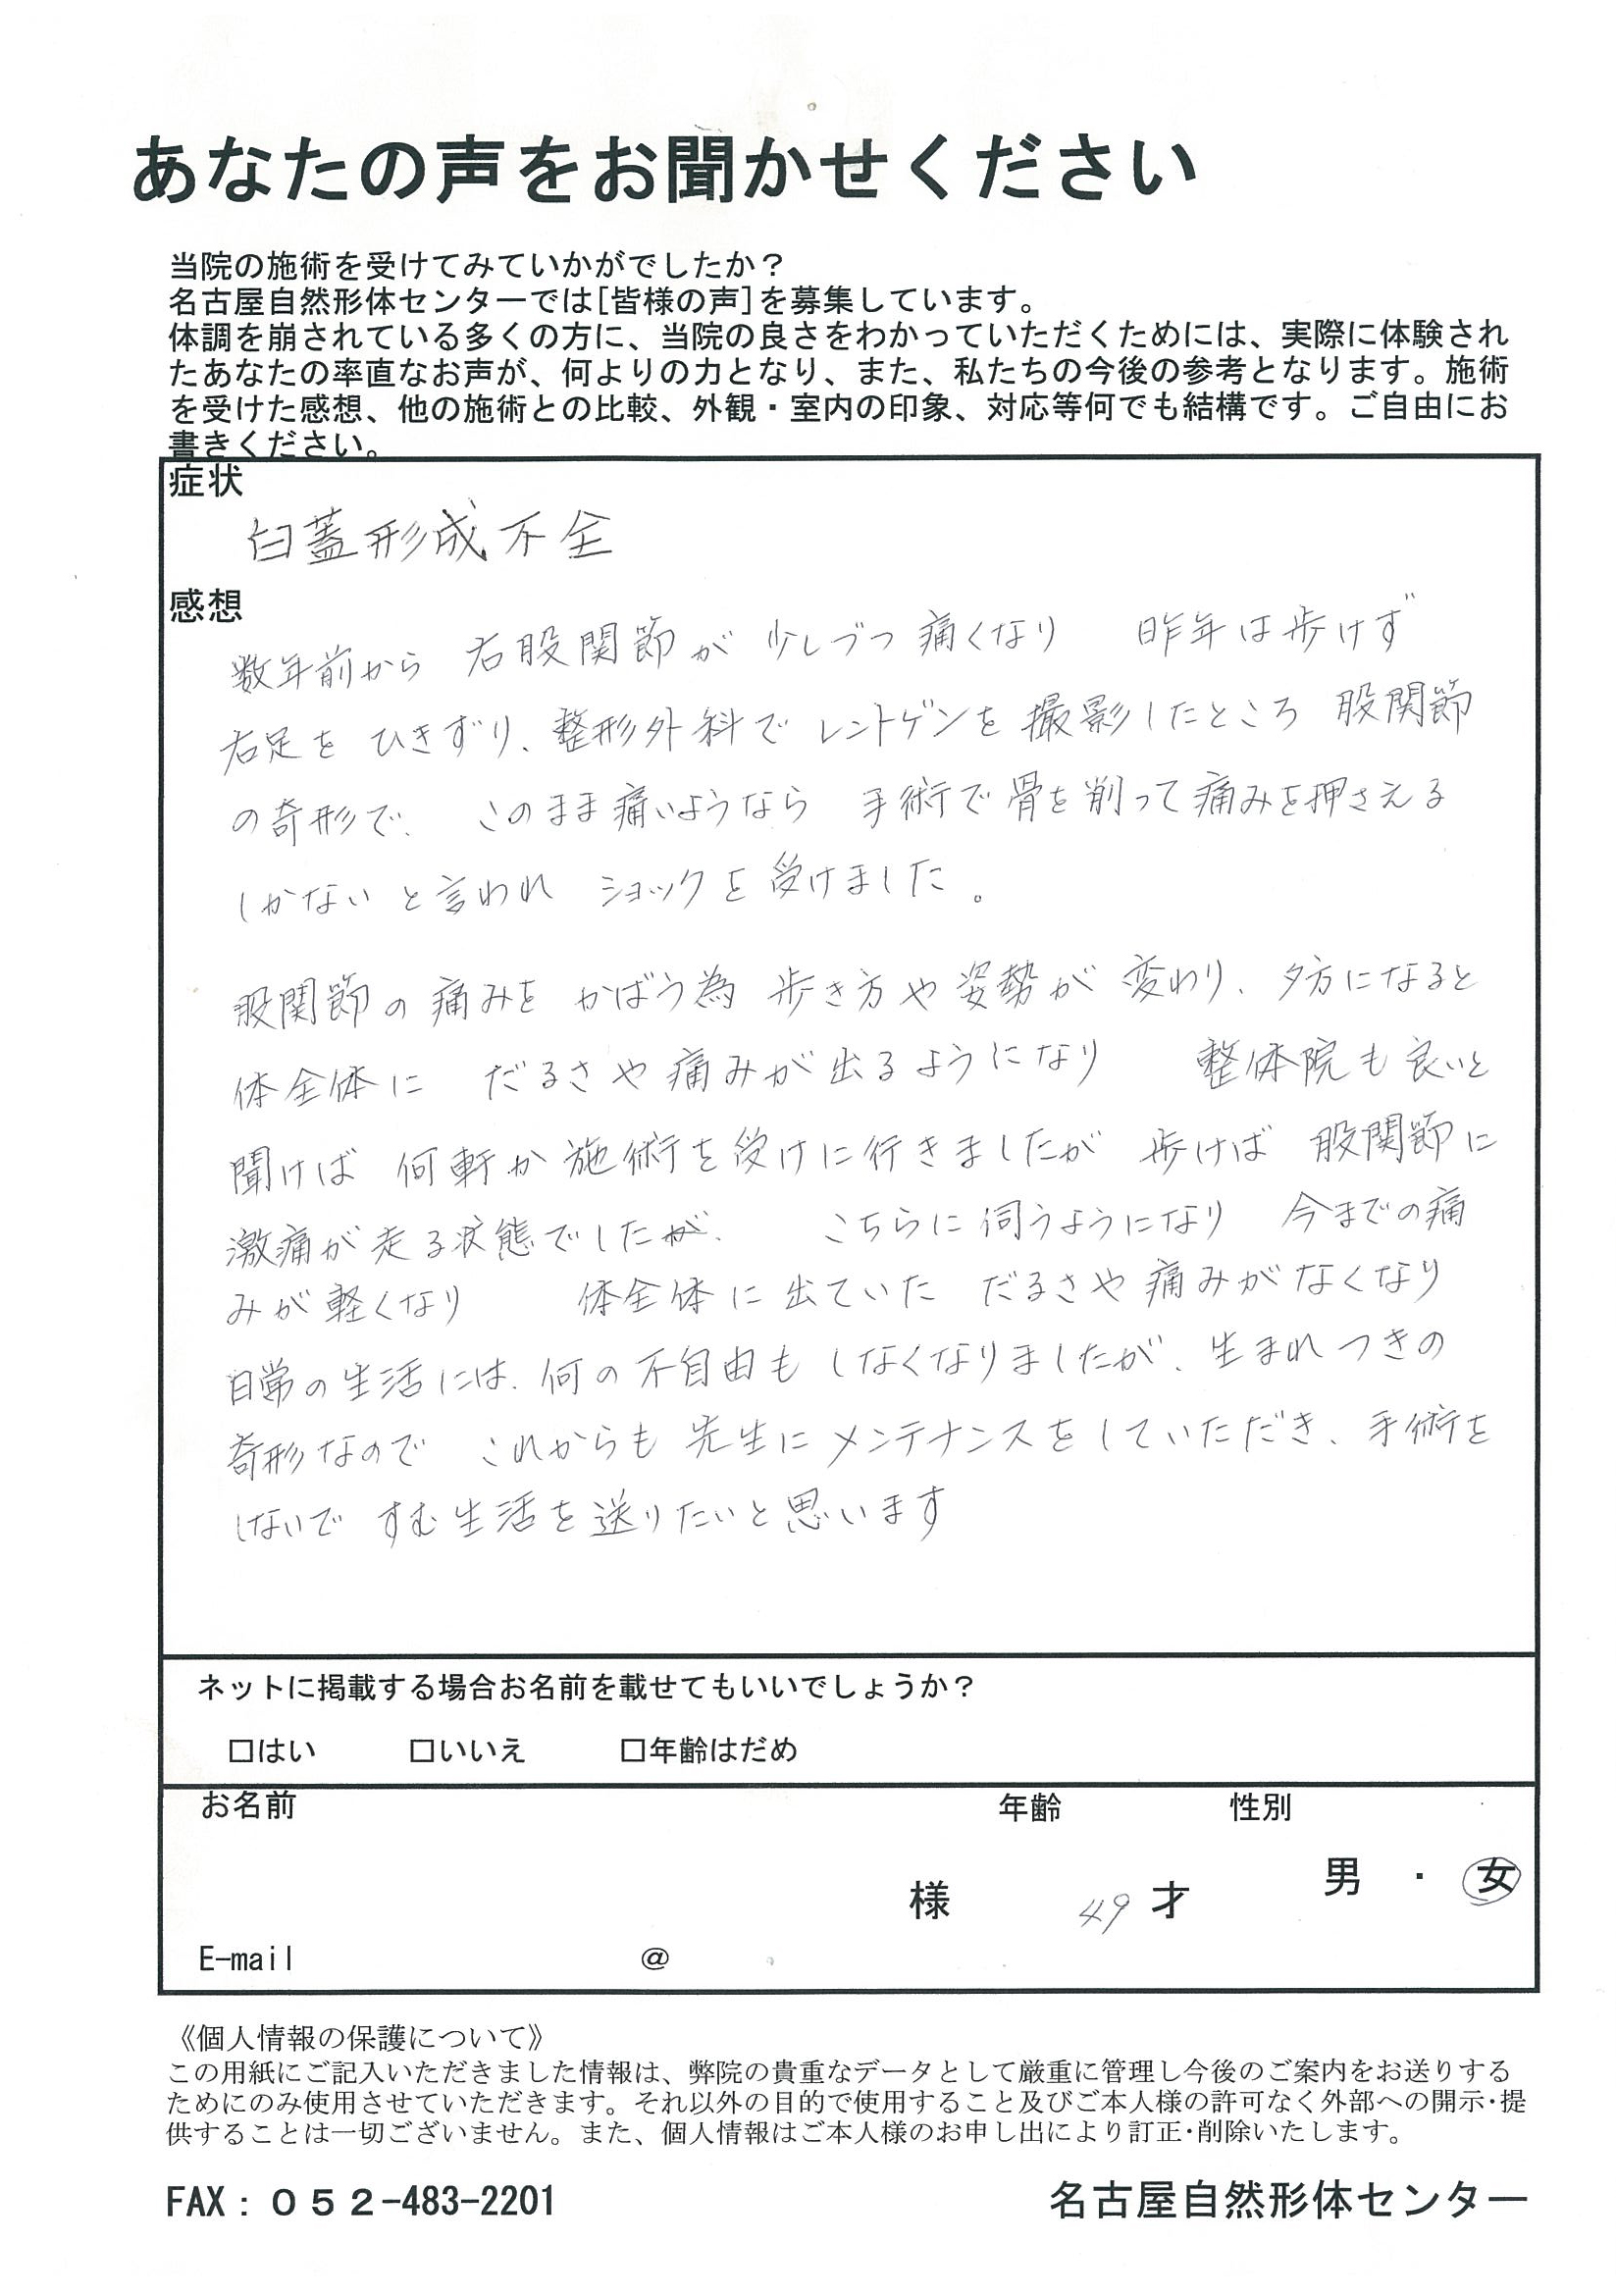 あなたの声をお聞かせください
当院の施術を受けてみていかがでしたか？
名古屋自然形体センターでは[皆様の声]を募集しています。
体調を崩されている多くの方に、当院の良さをわかっていただくためには、実際に体験され
たあなたの率直なお声が、何よりの力となり、また、私たちの今後の参考となります。施術
を受けた感想、他の施術との比較、外観・室内の印象、対応等何でも結構です。ご自由にお
書きください。
症状
臼蓋形成不全
感想
数年前から 右股関節が 少しづつ 痛くなり 昨年は歩けず
右足を ひきずり、整形外科で レントゲンを 撮影したところ 股関節
の奇形で、 このまま痛いようなら 手術で骨を削って痛みを押さえる
しかないと言われ ショックを受けました。
股関節の痛みを かばう為 歩き方や姿勢が 変わり、夕方になると
体全体に だるさや痛みが出るようになり 整体院も良いと
聞けば 何軒か施術を受けに行きましたが 歩けば 股関節に
激痛が走る状態でしたが、 こちらに伺うようになり 今までの痛
みが軽くなり 体全体に出ていた だるさや痛みがなくなり
日常の生活には、何の不自由も しなくなりましたが、生まれつきの
奇形なので これからも 先生にメンテナンスをしていただき、手術を
しないで すむ生活を送りたいと思います
ネットに掲載する場合お名前を載せてもいいでしょうか？
□はい □いいえ □年齢はだめ
お名前 年齢 性別
様 49才 男 ・ 女
E-mail @
《個人情報の保護について》
この用紙にご記入いただきました情報は、弊院の貴重なデータとして厳重に管理し今後のご案内をお送りする
ためにのみ使用させていただきます。それ以外の目的で使用すること及びご本人様の許可なく外部への開示･提
供することは一切ございません。また、個人情報はご本人様のお申し出により訂正･削除いたします。
FAX：０５２-483-2201 名古屋自然形体センター